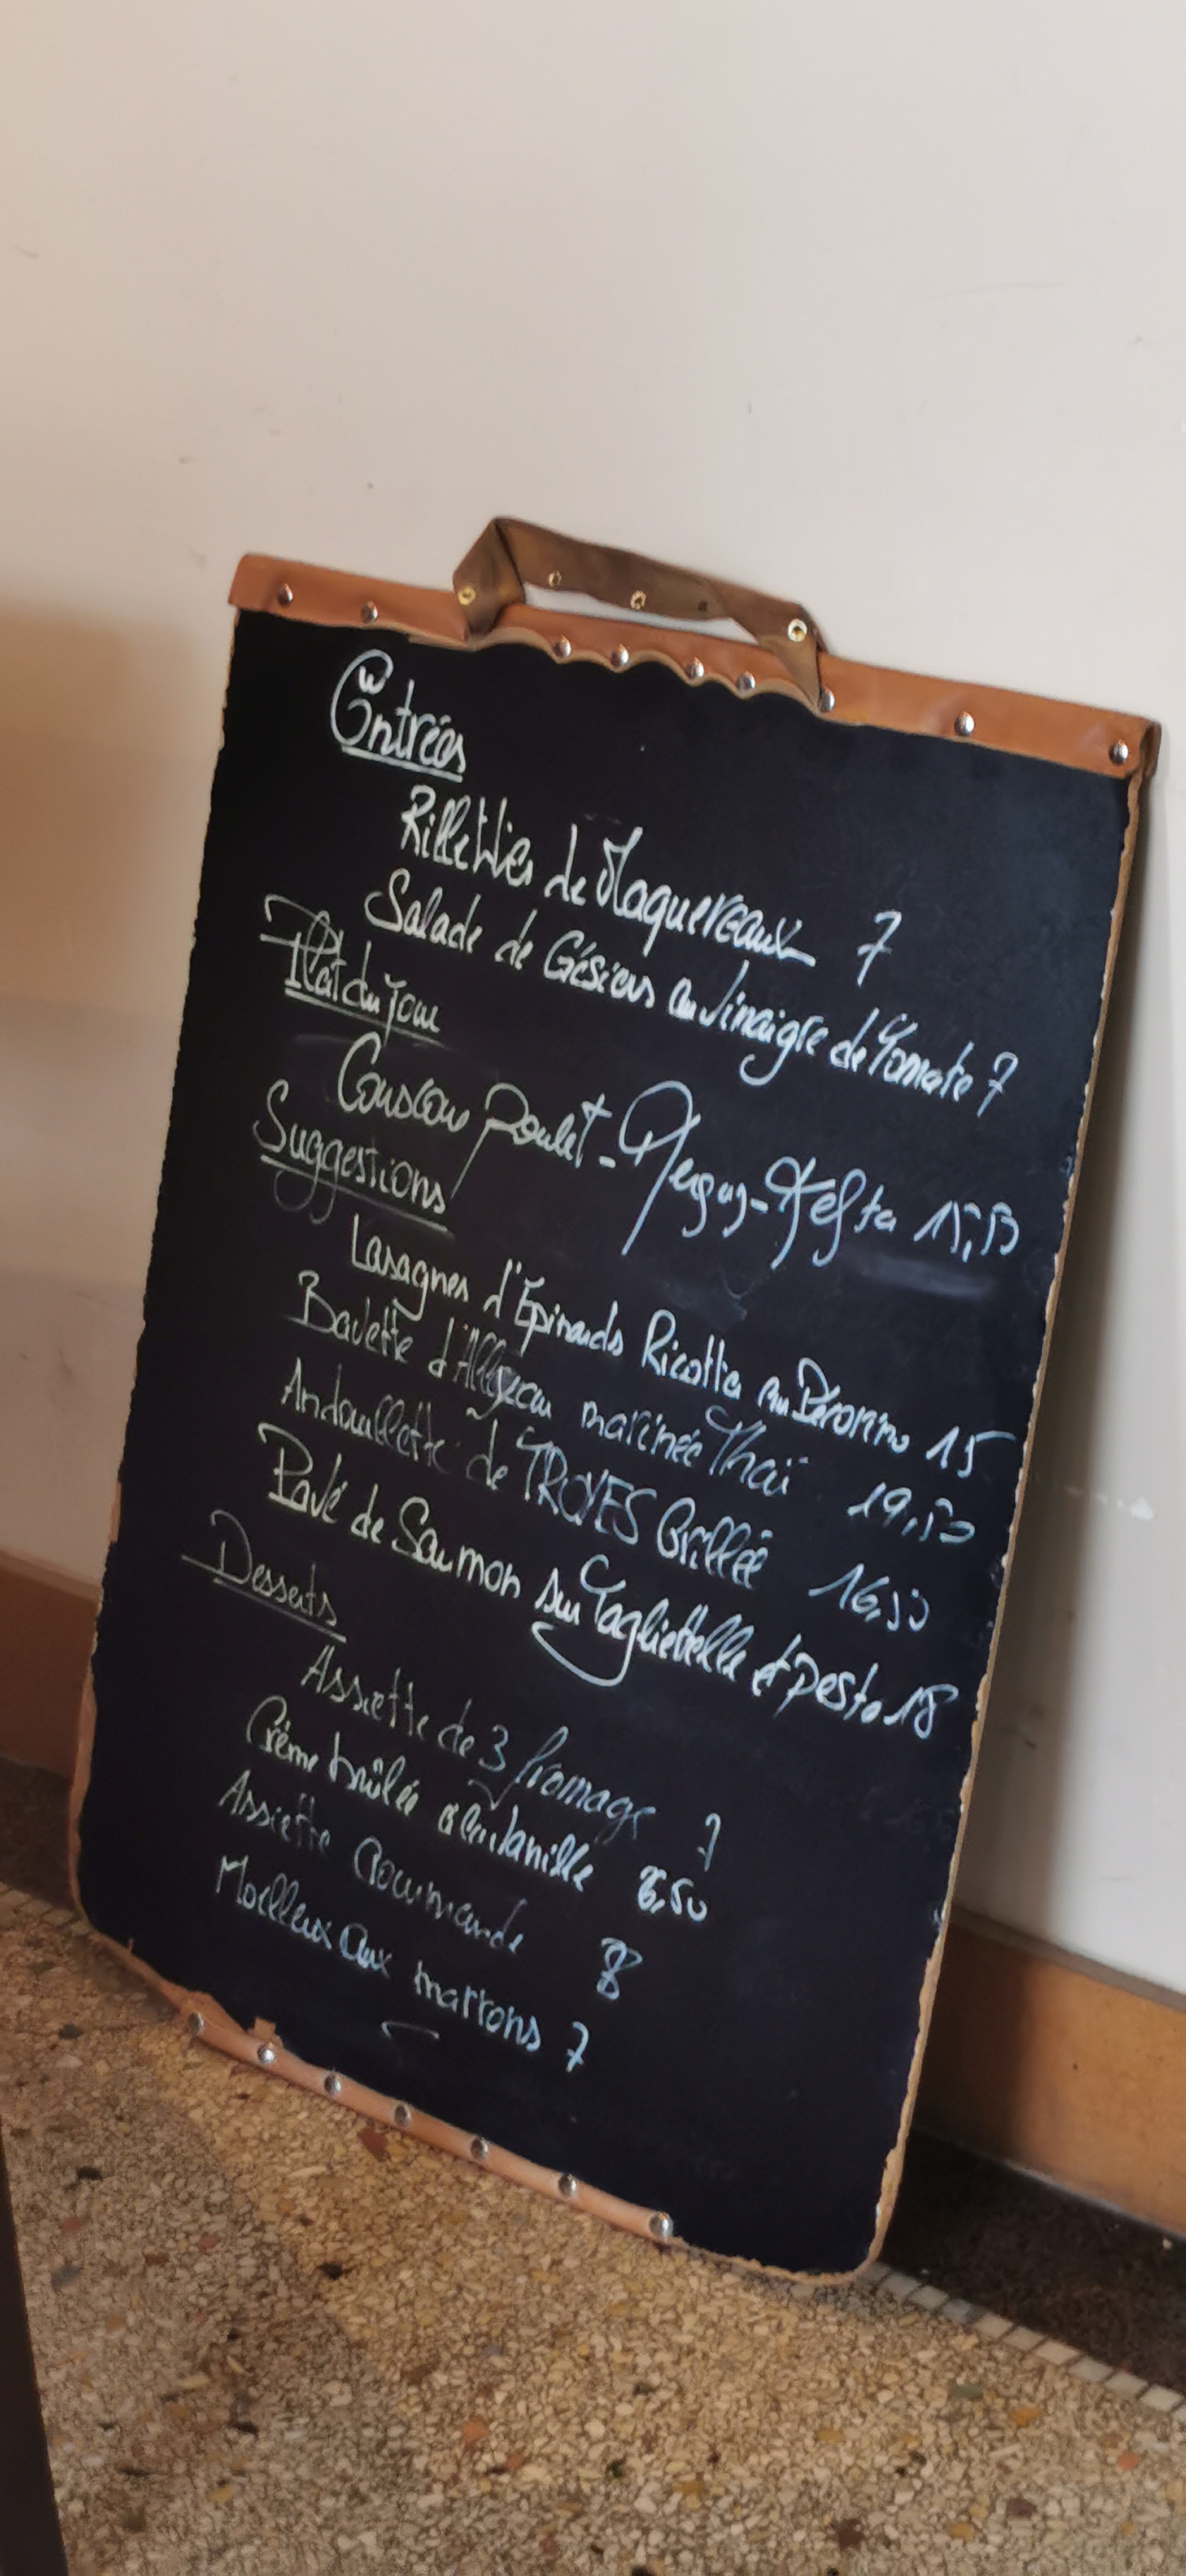 Entrées
Rillettes de Maquereaux 7
Salade de Gésiers au Vinaigre de Tomate 7
Plat du Jour
Couscous poulet - Merguez - Kefta
Suggestions
Lasagnes d'Epinards Ricotta au Pécorino 15
Bavette d'Alloyau marinée Thaï 19,50
Andouillette de TROYES Grillée 16,50
Pavé de Saumon sur Tagliettelle et pesto 18
Desserts
Assiette de 3 fromage 7
Crème brûlée à la Vanille 6,50
Assiette Gourmande 8
Moelleux aux marrons 7